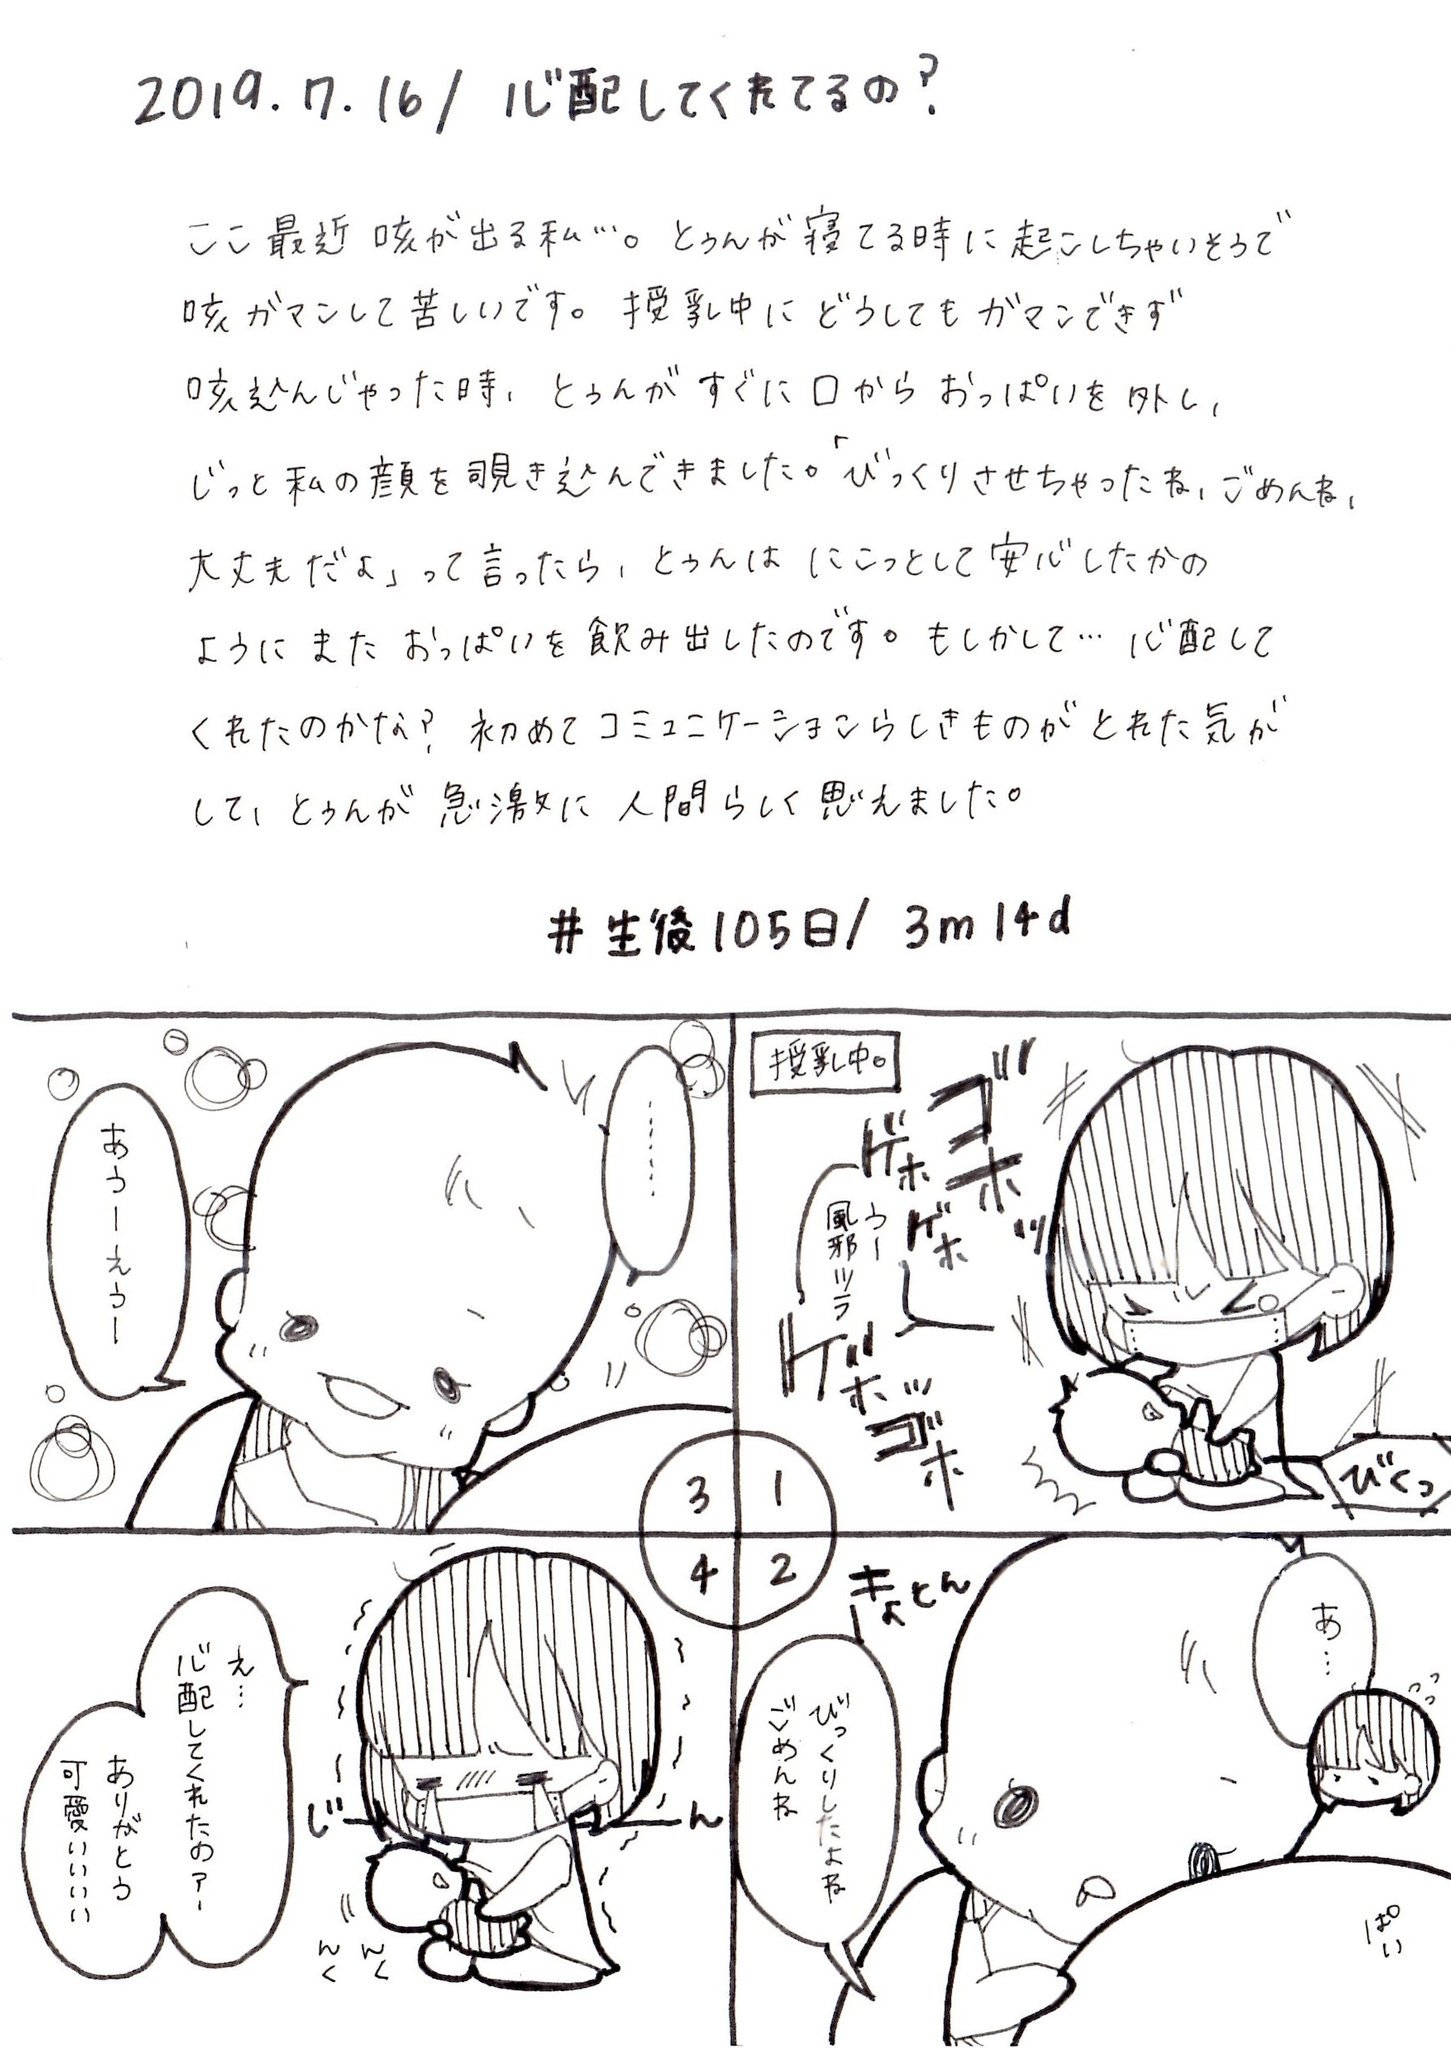 2019.7.16/ 心配してくれてるの?
ここ最近 咳が出る私…。とぅんが寝てる時に起こしちゃいそうで
咳ガマンして苦しいです。授乳中にどうしてもガマンできず
咳込んじゃった時、とぅんがすぐに口からおっぱいを外し、
じっと私の顔を覗き込んできました。「びっくりさせちゃったね、ごめんね、
大丈夫だよ」って言ったら、とぅんはにこっとして安心したかの
ようにまたおっぱいを飲み出したのです。もしかして…心配して
くれたのかな?初めてコミュニケーションらしきものがとれた気が
して、とぅんが急激に人間らしく思えました。
#生後105日/ 3m14d
授乳中。
ゴホッ
ゲホ
ゲホ
うー
風邪ツラ
ゲホッ
ゴホ
びくっ
1
あ…
きょとん
びっくりしたよね
ごめんね
ぱい
2
………
あうーえうー
3
え…
心配してくれたのァー
ありがとう
可愛いいいい
じーーん
んく
んく
4